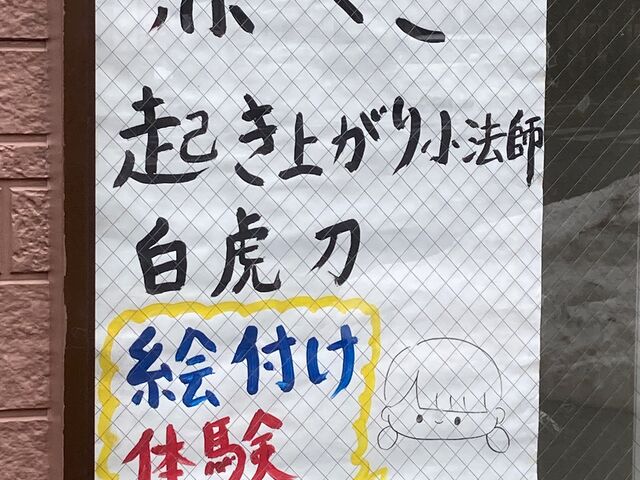 赤べこ
起き上がり小法師
白虎刀
絵付け
体験